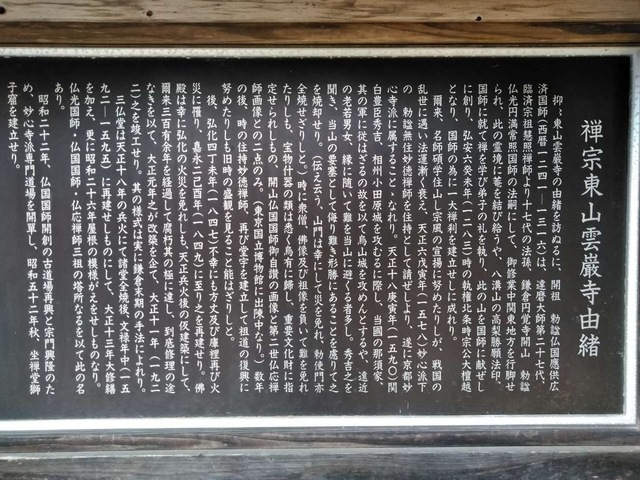 禅宗東山雲巌寺由緒
抑々東山雲巌寺の由緒を訪ぬるに、開祖 勅諡仏国応供広
済国師(西暦一二四一―一三一六)は、達磨大師第二十七代、
臨済宗祖慧照禅師より十七代の法孫、鎌倉円覚寺開山 勅諡
仏光円満常照国師の法嗣にして、御修業中関東地方を行脚せ
られ、此の霊境に菴を結び給うや、八溝山の高梨勝願法印、
国師に就て禅を学び弟子の礼を執り、此の山を国師に献ぜし
に創り、弘安六癸未年(一二八三)時の執権北条時宗公大檀越
となり、国師の為に一大禅利を建立せしに成れり。
爾来、名師碩学住山し宗風の宣揚に努めたりしが、戦国の
乱世に遇い法運漸く衰え、天正六戊寅年(一五七八)妙心派下
の 勅諡無住妙徳禅師を住持として請ぜしより、遂に京都妙
心寺派に属すること丶なれり。天正十八庚寅年(一五九〇)関
白豊臣秀吉、相州小田原城を攻むるに際し、当国の那須家、
其の軍に従はざるの故を以て烏山城を攻めんとするや、遠近
の老若男女、縁に随いて難を当山に避くる者多し。秀吉之を
聞き、当山の要塞として侮り難き形勝にあることを慮りて之
を焼却せり。(伝え云う、山門は幸にして災を免れ、勅使門亦
全焼せざりしと。)時に衆僧、佛像及び祖像を負いて難を免れ
たりしも、宝物什器の類は悉く烏有に帰し、重要文化財に指
定せられしもの、開山仏国国師御自讃の画像と第二世仏応禅
師画像との二点のみ。(東京国立博物館に出陳中なり。)数年
の後、時の住持妙徳禅師、再び堂宇を建立して祖道の復興に
努めたりしも旧時の盛観を見ること能はざりしと。
後、弘化四丁未年(一八四七)不幸にも方丈及び庫裡再び火
災に罹り、嘉永二己酉年(一八四九)に至り之を再建せり。佛
殿は幸に弘化の火災を免れしも、天正兵火後の仮建築にして、
爾来三百有余年を経過して腐朽其の極に達し、到底修理の途
なきを以て、大正元年之が改築を企て、大正十一年(一九二
二)之を竣工せり。其の様式は実に鎌倉末期の手法によれり。
三仏堂は天正十八年の兵火にて諸堂全焼後、文禄年中(一五
九二―一五九五)に再建せしものにして、大正十三年大修繕
を加え、更に昭和二十六年屋根の模様がえをせしものなり。
仏光国師・仏国国師・仏応禅師三祖の塔所なるを以て此の名
あり。
昭和二十二年、仏国国師開創の古道場再興と宗門興隆のた
め、妙心寺派専門道場を開単し、昭和五十二年秋、坐禅堂獅
子窟を建立せり。